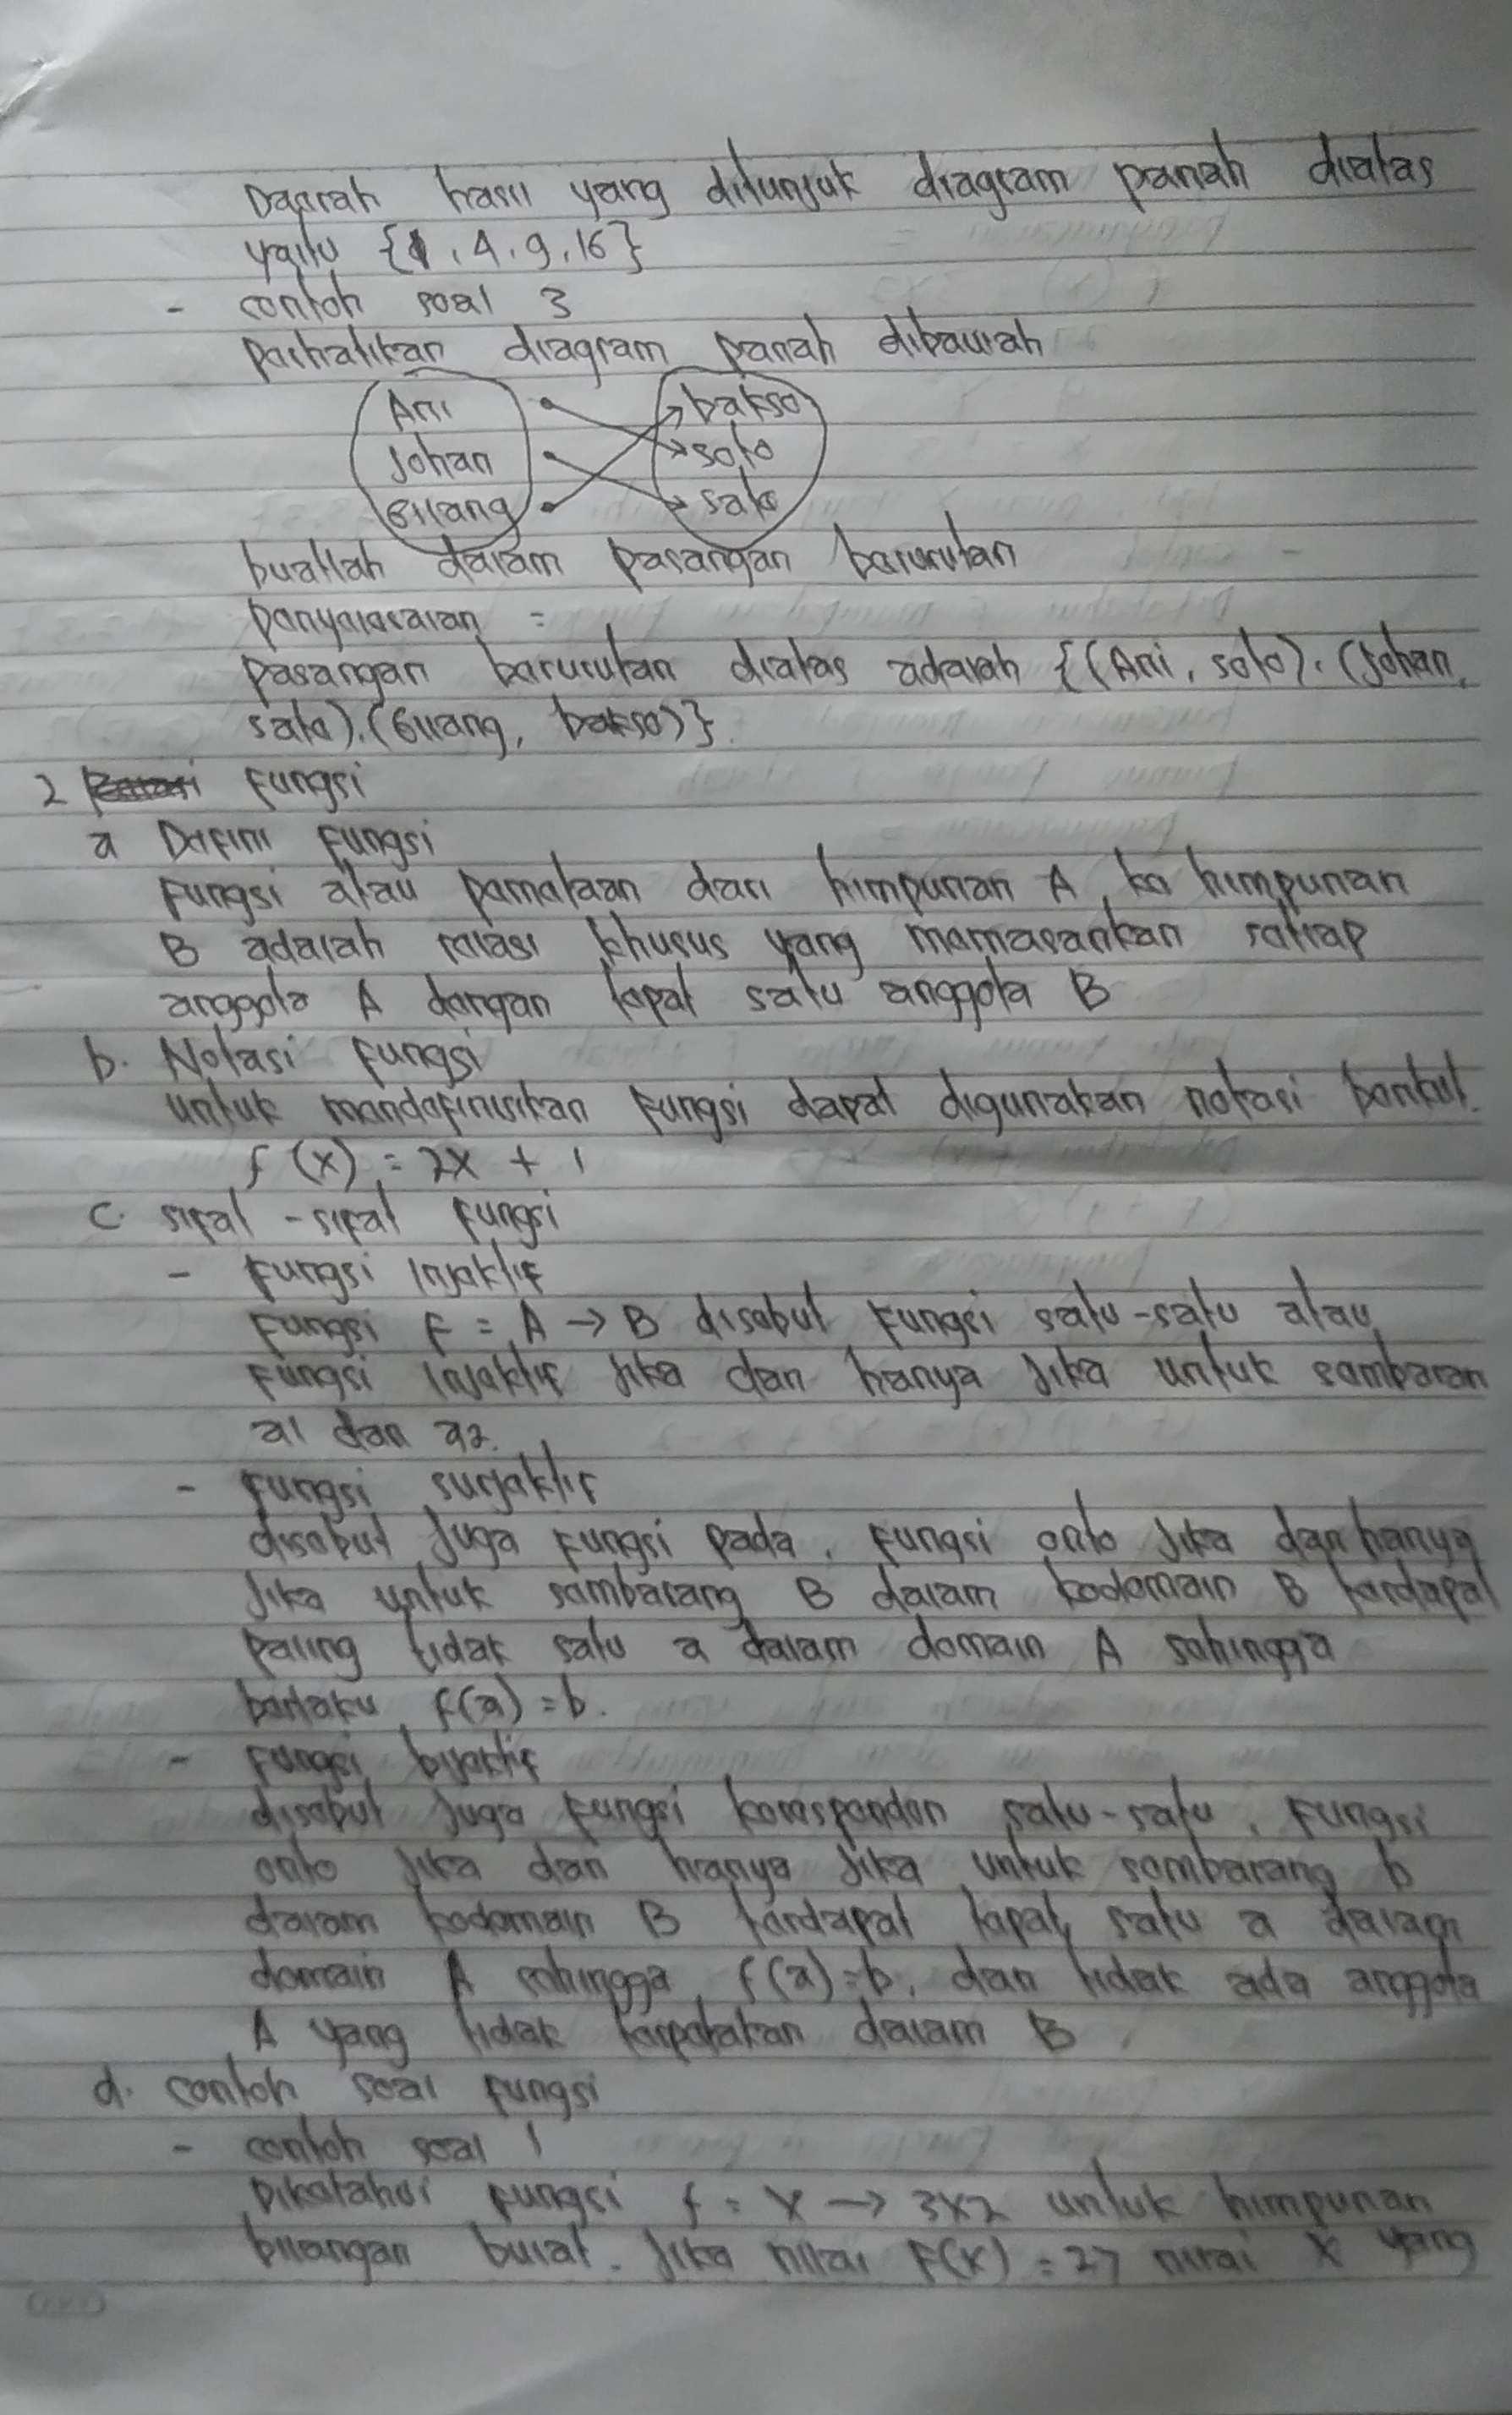 Daerah hasil yang ditunjuk diagram panah diatas
yaitu {1, 4, 9, 16}
- contoh soal 3
perhatikan diagram panah dibawah
Ani bakso
Johan soto
Gilang sate
buatlah dalam pasangan berurutan
penyelesaian =
pasangan berurutan diatas adalah {(Ani, soto), (Johan,
sate), (Gilang, bakso)}
2 Fungsi
a Defini Fungsi
Fungsi atau pemetaan dari himpunan A ke himpunan
B adalah relasi khusus yang memasankan setiap
anggota A dengan tepat satu anggota B
b. Notasi Fungsi
untuk mendefinisikan fungsi dapat digunakan notasi berikut.
f (x) = 2x + 1
c. sifat - sifat fungsi
- Fungsi Injektif
Fungsi F = A → B disebut fungsi satu-satu atau
fungsi injektif jika dan hanya jika untuk sembaran
a1 dan a2.
- fungsi surjektif
disebut juga fungsi pada, fungsi onto jika dan hanya
jika untuk sembarang B dalam kodomain B terdapat
paling tidak satu a dalam domain A sehingga
berlaku f(a) = b.
- Fungsi bijektif
disebut juga fungsi koresponden satu-satu, fungsi
onto jika dan hanya jika untuk sembarang b
dalam kodomain B terdapat tepat satu a dalam
domain A sehingga f(a) = b, dan tidak ada anggota
A yang tidak terpetakan dalam B
d. contoh soal fungsi
- contoh soal 1
Diketahui fungsi f = x → 3x2 untuk himpunan
bilangan bulat. Jika nilai F(x) = 27 nilai x yang